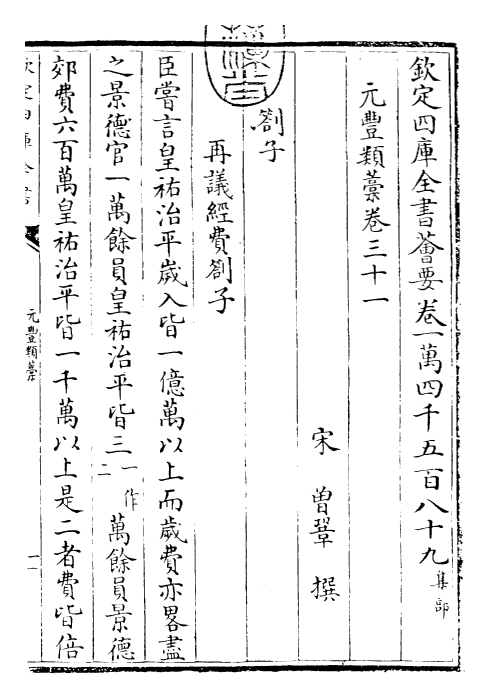 欽定四庫全書薈要卷一萬四千五百八十九集部
元豐類藳卷三十一
宋曾鞏撰
劄子
再議經費劄子
臣嘗言皇祐治平歲入皆一億萬以上而歲費亦畧盡
之景德官一萬餘員皇祐治平皆三一作二萬餘員景德
郊費六百萬皇祐治平皆一千萬以上是二者費皆倍
元豐類藳
一